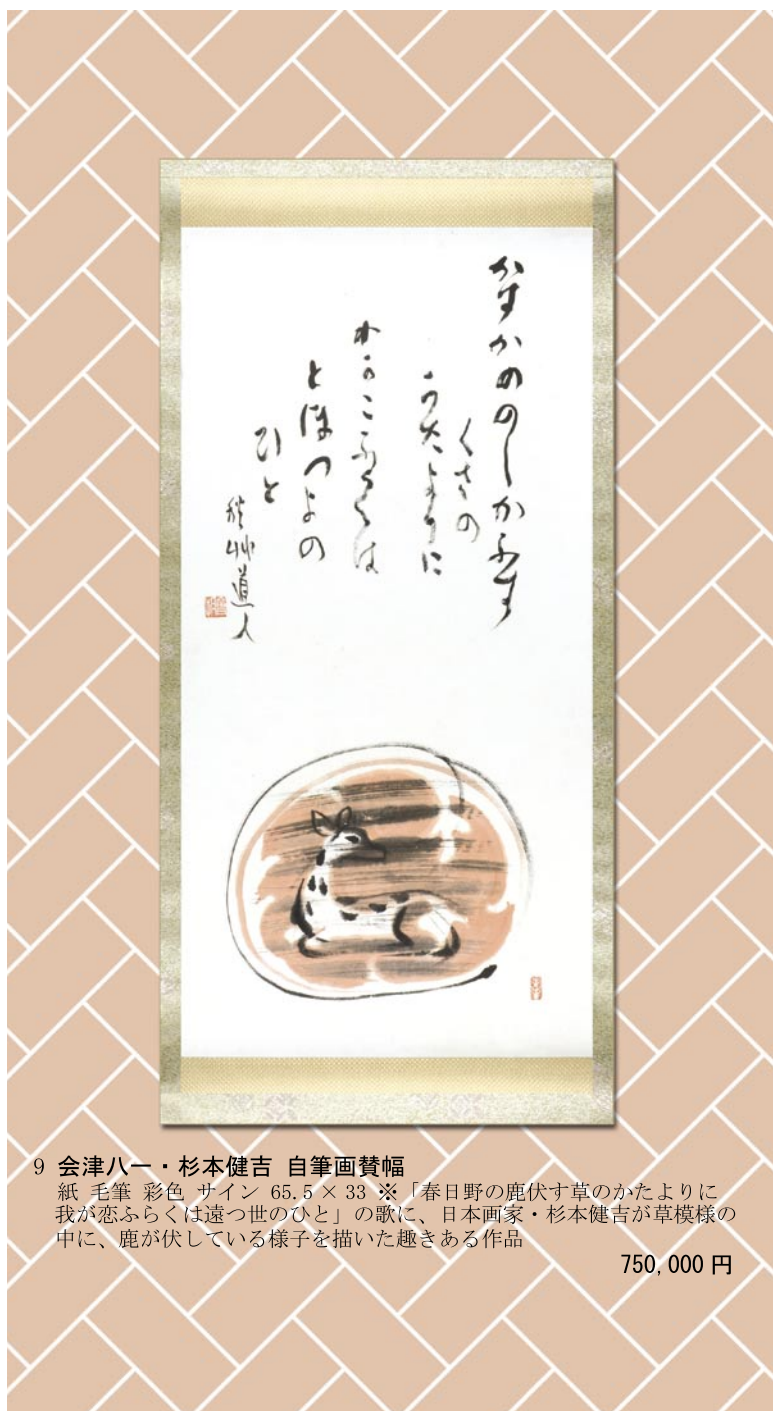 かすかののしかふす
くさの
かたよりに
わかこふらくは
とほつよの
ひと
秋艸道人
9 会津八一・杉本健吉 自筆画賛幅
紙 毛筆 彩色 サイン 65.5 × 33 ※「春日野の鹿伏す草のかたよりに
我が恋ふらくは遠つ世のひと」の歌に、日本画家・杉本健吉が草模様の
中に、鹿が伏している様子を描いた趣きある作品
750,000 円